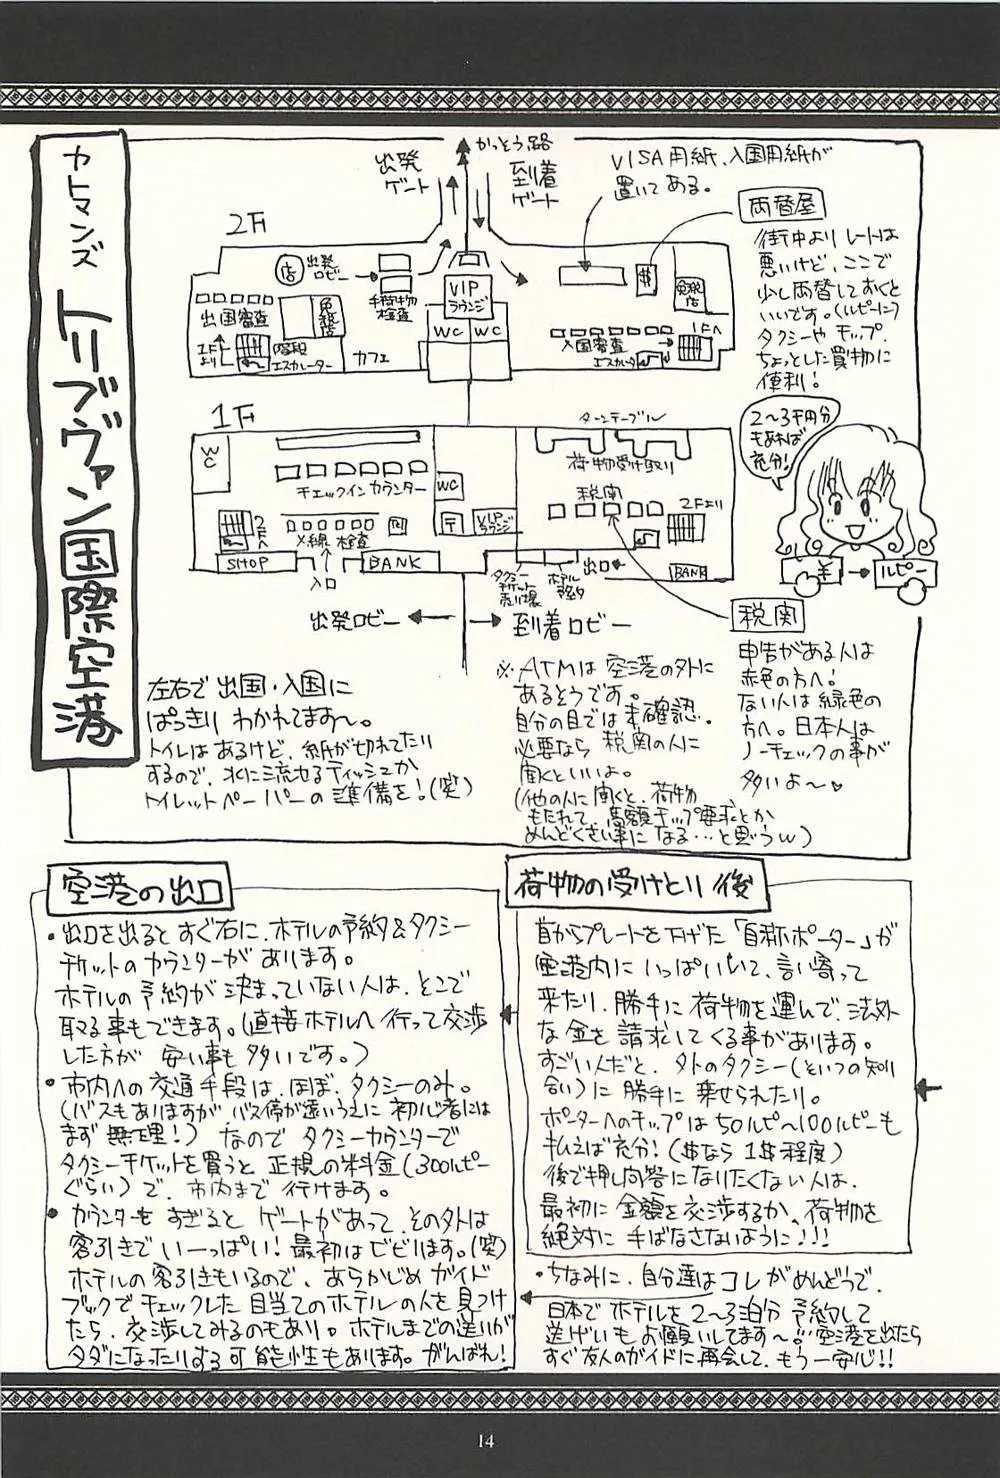 カトマンズ
トリブヴァン国際空港
かっとう路
出発
ゲート
到着
ゲート
VISA用紙、入国用紙が
置いてある。
両替屋
街中よりレートは
悪いけど、ここで
少し両替しておくと
いいです。(ルピーに)
タクシーやチップ、
ちょっとした買物に
便利!
2F
店
出発
ロビー
手荷物
検査
VIP
ラウンジ
$
免税
店
出国審査
免税店
1F
より
階段
エスカレーター
カフェ
WC
WC
入国審査
エスカレータ
1Fへ
2〜3千円分
もあれば
充分!
¥
ルピー
1F
WC
チェックインカウンター
WC
ターンテーブル
荷物受け取り
税関
2Fより
2Fへ
X線検査
〒
VIP
ラウンジ
SHOP
入口
BANK
タクシー
チケット
売り場
ホテル
予約
出口
BANK
出発ロビー
到着ロビー
税関
申告がある人は
赤色の方へ!
ない人は緑色の
方へ。日本人は
ノーチェックの事が
多いよ〜♥
左右で出国・入国に
ぱっきりわかれてます〜。
トイレはあるけど、紙が切れてたり
するので、水に流せるティッシュか
トイレットペーパーの準備を!(笑)
※ATMは空港の外に
あるそうです。
自分の目では未確認。
必要なら税関の人に
聞くといいよ。
(他の人に聞くと、荷物
もたれて、高額チップ要求とか
めんどくさい事になる…と思うw)
空港の出口
・出口を出るとすぐ右に、ホテルの予約&タクシー
チケットのカウンターがあります。
ホテルの予約が決まっていない人は、そこで
取る事もできます。(直接ホテルへ行って交渉
した方が安い事も多いです。)
・市内への交通手段は、ほぼ、タクシーのみ。
(バスもありますが、バス停が遠いうえに初心者には
まず無理!)なのでタクシーカウンターで
タクシーチケットを買うと正規の料金(300ルピー
ぐらい)で、市内まで行けます。
・カウンターをすぎるとゲートがあって、その外は
客引きでいーっぱい!最初はビビります。(笑)
ホテルの客引きもいるので、あらかじめガイド
ブックでチェックした目当てのホテルの人を見つけ
たら、交渉してみるのもあり。ホテルまでの送りが
タダになったりする可能性もあります。がんばれ!
荷物の受けとり後
首からプレートを下げた「自称ポーター」が
空港内にいっぱいいて、言い寄って
来たり、勝手に荷物を運んで、法外
な金を請求してくる事があります。
すごい人だと、外のタクシー(といつの知り
合い)に勝手に乗せられたり。
ポーターへのチップは50ルピー〜100ルピーも
払えば充分!($なら1$程度)
後で押し問答になりたくない人は、
最初に金額を交渉するか、荷物を
絶対に手ばなさないように!!!
・ちなみに、自分達はコレがめんどうで、
日本でホテルを2〜3泊分予約して
送迎もお願いしてます〜。空港を出たら
すぐ友人のガイドに再会して、もう一安心!!
14